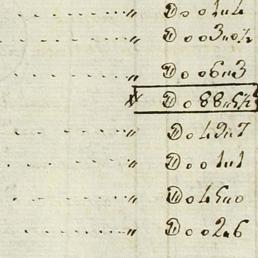 " Ⓓ o o 1 " 4
" Ⓓ o o 3 " 0½
" Ⓓ o o 6 " 3
" Ⓓ o 88 " 5½
" Ⓓ o 43 " 7
" Ⓓ o o 1 " 1
" Ⓓ o 45 " 0
" Ⓓ o o 2 " 6